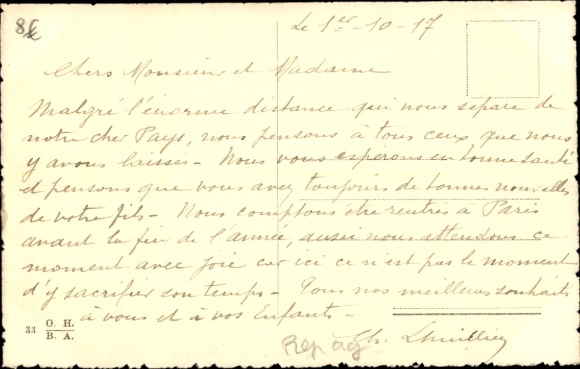 86
Le 1er-10-17
Chers Monsieur et Madame
Malgré l'énorme distance qui nous sépare de
notre cher Pays, nous pensons à tous ceux que nous
y avons laissés - Nous vous espérons en bonne santé
et pensons que vous avez toujours de bonnes nouvelles
de votre fils - Nous comptons être rentrés à Paris
avant la fin de l'année, aussi nous attendons ce
moment avec joie car ici ce n'est pas le moment
d'y sacrifier son temps - Tous nos meilleurs souhaits
à vous et à vos Enfants -
Ch. Lhuillier
33 O. H.
B. A.